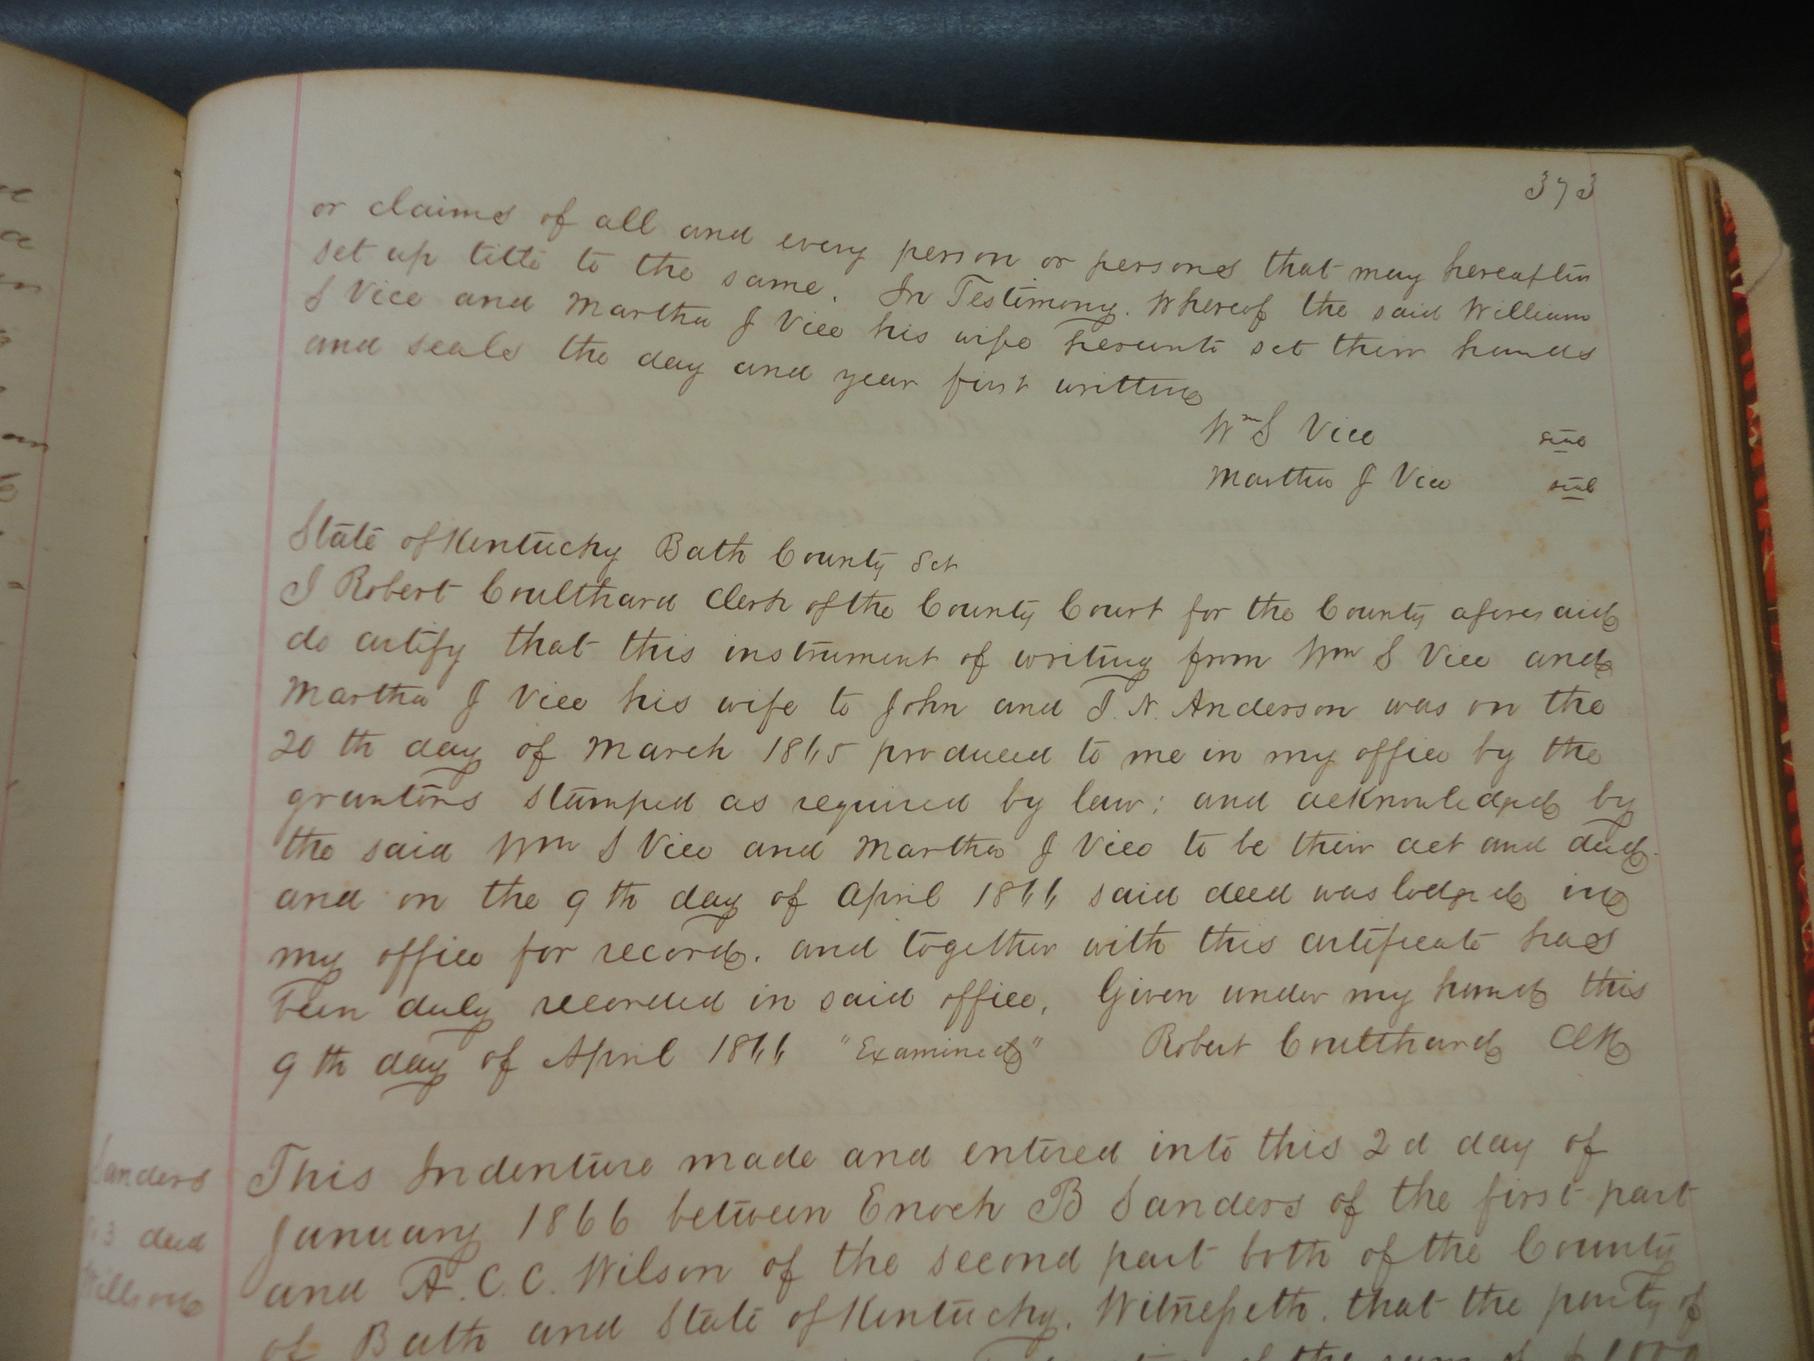 373
or claims of all and every person or persons that may hereafter
set up title to the same. In Testimony. Whereof the said William
S Vice and Martha J Vice his wife hereunto set their hands
and seals the day and year first written
Wm S Vice seal
Martha J Vice seal
State of Kentucky Bath County Sct
I Robert Coulthard Clerk of the County Court for the County aforesaid
do certify that this instrument of writing from Wm S Vice and
Martha J Vice his wife to John and J. N. Anderson was on the
20th day of March 1865 produced to me in my office by the
grantors stamped as required by law; and acknowledged by
the said Wm S Vice and Martha J Vice to be their act and deed.
and on the 9th day of April 1866 said deed was lodged in
my office for record. and together with this certificate has
been duly recorded in said office. Given under my hand this
9th day of April 1866 "Examined" Robert Coulthard Clk
Sanders
deed
Willson
This Indenture made and entered into this 2d day of
January 1866 between Enoch B Sanders of the first part
and A. C. C. Wilson of the second part both of the County
of Bath and State of Kentucky. Witnesseth. that the party of
the sum of $1000